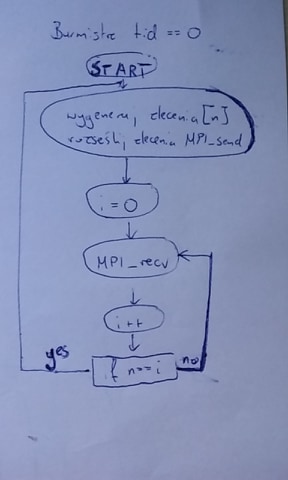 Burmistrz tid == 0
START
wygeneruj zlecenia [n]
rozeslij zlecenia MPI_send
i = 0
MPI_recv
i++
yes
if n == i
no